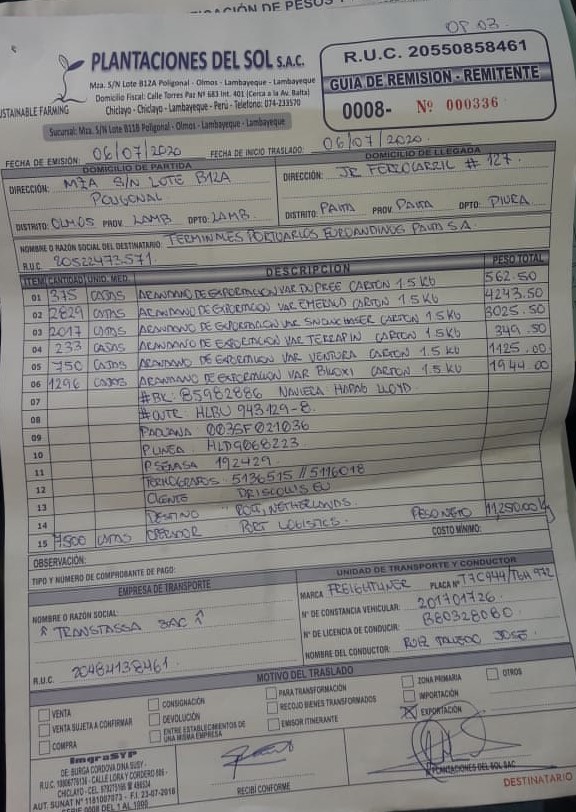 CACIÓN DE PESOS
OP 03
PLANTACIONES DEL SOL S.A.C.
Mza. S/N Lote B12A Poligonal - Olmos - Lambayeque
Domicilio Fiscal: Calle Torres Paz Nº 683 Int. 401 (Cerca a la Av. Balta)
Chiclayo - Chiclayo - Lambayeque - Perú - Telefono: 074-233570
SUSTAINABLE FARMING
Sucursal: Mza. S/N Lote B11B Poligonal - Olmos - Lambayeque
R.U.C. 20550858461
GUIA DE REMISION - REMITENTE
0008- Nº 000336
FECHA DE EMISIÓN: 06/07/2020 FECHA DE INICIO TRASLADO: 06/07/2020
DOMICILIO DE PARTIDA
DIRECCIÓN: MZA S/N LOTE B12A
POLIGONAL
DISTRITO: OLMOS PROV. LAMB. DPTO: LAMB.
DOMICILIO DE LLEGADA
DIRECCIÓN: JR FERROCARRIL # 127.
DISTRITO: PAITA PROV. PAITA DPTO: PIURA
NOMBRE O RAZÓN SOCIAL DEL DESTINATARIO: TERMINALES PORTUARIOS EUROANDINOS PAITA S.A.
R.U.C. 20522473571.
ITEM CANTIDAD UNID. MED. DESCRIPCION PESO TOTAL
01 375 CAJAS ARANDANO DE EXPORTACION VAR DUPREE CARTON 1.5 KG 562.50
02 2829 CAJAS ARANDANO DE EXPORTACION VAR EMERALD CARTON 1.5 KG 4243.50
03 2017 CAJAS ARANDANO DE EXPORTACION VAR SNOWCHASER CARTON 1.5 KG 3025.50
04 233 CAJAS ARANDANO DE EXPORTACION VAR TERRAPIN CARTON 1.5 KG 349.50
05 750 CAJAS ARANDANO DE EXPORTACION VAR VENTURA CARTON 1.5 KG 1125.00
06 1296 CAJAS ARANDANO DE EXPORTACION VAR BILOXI CARTON 1.5 KG 1944.00
07 #BK: 85982886 NAVIERA HAPAG LLOYD.
08 #CNTR: HLBU 943129-8.
09 P.ADUANA 003SF021036
10 P.LINEA: HLD9068223.
11 P.SENASA 192429.
12 TERMOGRAFOS: 5136515 // 5116018
13 CLIENTE DRISCOLLS EU
14 DESTINO: ROTT, NETHERLANDS.
15 7500 CAJAS OPERADOR: PORT LOGISTICS. PESO NETO 11,250.00 Kg
OBSERVACIÓN: COSTO MÍNIMO:
TIPO Y NÚMERO DE COMPROBANTE DE PAGO:
EMPRESA DE TRANSPORTE
NOMBRE O RAZÓN SOCIAL:
TRANSTASSA SAC
R.U.C. 20484138461.
UNIDAD DE TRANSPORTE Y CONDUCTOR
MARCA FREIGHTLINER PLACA Nº T7C944/T6H 972
Nº DE CONSTANCIA VEHICULAR: 201701726.
Nº DE LICENCIA DE CONDUCIR: B80328080
NOMBRE DEL CONDUCTOR: RUIZ TALLEDO JOSE.
MOTIVO DEL TRASLADO
VENTA CONSIGNACIÓN PARA TRANSFORMACIÓN ZONA PRIMARIA OTROS
VENTA SUJETA A CONFIRMAR DEVOLUCIÓN RECOJO BIENES TRANSFORMADOS IMPORTACIÓN
COMPRA ENTRE ESTABLECIMIENTOS DE UNA MISMA EMPRESA EMISOR ITINERANTE EXPORTACIÓN
ImgraSYP
DE: BURGA CORDOVA DINA SUSY -
R.U.C. 10806776136 - CALLE LORA Y CORDERO 806 -
CHICLAYO
AUT. SUNAT Nº 1181007073 - F.I. 23-07-2018
SERIE 0008 DEL 1 AL 1000
RECIBÍ CONFORME
PLANTACIONES DEL SOL SAC
DESTINATARIO